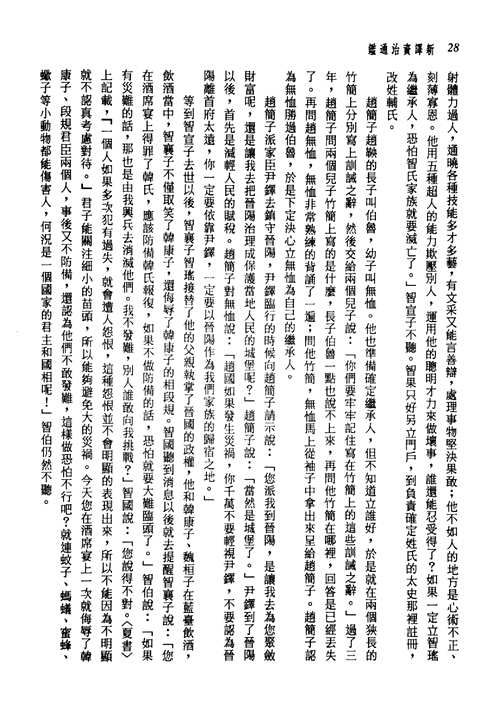 28　新譯資治通鑑
射體力過人，通曉各種技能多才多藝，有文采又能言善辯，處理事物堅決果敢；他不如人的地方是心術不正、
刻薄寡恩。他用五種超人的能力欺壓別人，運用他的聰明才力來做壞事，誰還能忍受得了？如果一定立智瑤
為繼承人，恐怕智氏家族就要滅亡了。」智宣子不聽。智果只好另立門戶，到負責確定姓氏的太史那裡註冊，
改姓輔氏。
趙簡子趙鞅的長子叫伯魯，幼子叫無恤。他也準備確定繼承人，但不知道立誰好，於是就在兩個狹長的
竹簡上分別寫上訓誡之辭，然後交給兩個兒子說：「你們要牢牢記住寫在竹簡上的這些訓誡之辭。」過了三
年，趙簡子問兩個兒子竹簡上寫的是什麼，長子伯魯一點也說不上來，再問他竹簡在哪裡，回答是已經丟失
了。再問趙無恤，無恤非常熟練的背誦了一遍；問他竹簡，無恤馬上從袖子中拿出來呈給趙簡子。趙簡子認
為無恤勝過伯魯，於是下定決心立無恤為自己的繼承人。
趙簡子派家臣尹鐸去鎮守晉陽，尹鐸臨行的時候向趙簡子請示說：「您派我到晉陽，是讓我去為您聚斂
財富呢，還是讓我去把晉陽治理成保護當地人民的城堡呢？」趙簡子說：「當然是城堡了。」尹鐸到了晉陽
以後，首先是減輕人民的賦稅。趙簡子對無恤說：「趙國如果發生災禍，你千萬不要輕視尹鐸，不要認為晉
陽離首府太遠，你一定要依靠尹鐸，一定要以晉陽作為我們家族的歸宿之地。」
等到智宣子去世以後，智襄子智瑤接替了他的父親執掌了晉國的政權，他和韓康子、魏桓子在藍臺飲酒，
飲酒當中，智襄子不僅取笑了韓康子，還侮辱了韓康子的相段規。智國聽到消息以後就去提醒智襄子說：「您
在酒席宴上得罪了韓氏，應該防備韓氏報復，如果不做防備的話，恐怕就要大難臨頭了。」智伯說：「如果
有災難的話，那也是由我興兵去消滅他們。我不發難，別人誰敢向我挑戰？」智國說：「您說得不對。《夏書》
上記載，『一個人如果多次犯有過失，就會遭人怨恨，這種怨恨並不會明顯的表現出來，所以不能因為不明顯
就不認真考慮對待。』君子能關注細小的苗頭，所以能夠避免大的災禍。今天您在酒席宴上一次就侮辱了韓
康子、段規君臣兩個人，事後又不防備，還認為他們不敢發難，這樣做恐怕不行吧？就連蚊子、螞蟻、蜜蜂、
蠍子等小動物都能傷害人，何況是一個國家的君主和國相呢！」智伯仍然不聽。